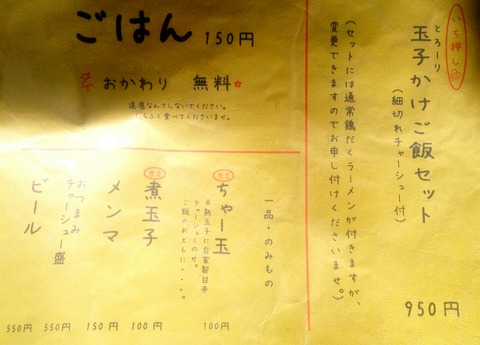 いち押し
とろーり
玉子かけご飯セット
(細切れチャーシュー付)
(セットには通常鶏だくラーメンが付きますが、
変更できますのでお申し付けくださいませ。)
950円
ごはん 150円
おかわり 無料
遠慮なんてしないでください。
たらふく食べてくださいませ。
一品・のみもの
ちゃー玉
半熟玉子に自家製甘辛
チャーシューのせ。
ご飯のおともに・・・。
100円
煮玉子
100円
メンマ
150円
おつまみ
チャーシュー盛
550円
ビール
550円